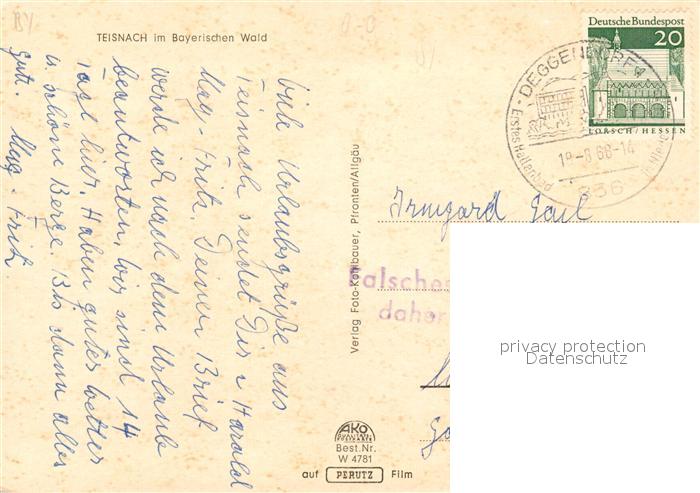 BY
TEISNACH im Bayerischen Wald
Viele Urlaubsgrüße aus
Teisnach sendet Dir u Harald
Mag - Fritz. Deinen Brief
werde ich nach dem Urlaub
beantworten, wir sind 14
Tage hier. Haben gutes Wetter
u. schöne Berge. Bis dann alles
gute. Mag - Fritz
Verlag Foto-Kohlbauer, Pfronten/Allgäu
AKO
Best.Nr.
W 4781
auf PERUTZ Film
Deutsche Bundespost
20
LORSCH/HESSEN
DEGGENDORF
Erstes Hallenbad
-8 68-14
836
Irmgard
Falsches
daher
privacy protection
Datenschutz